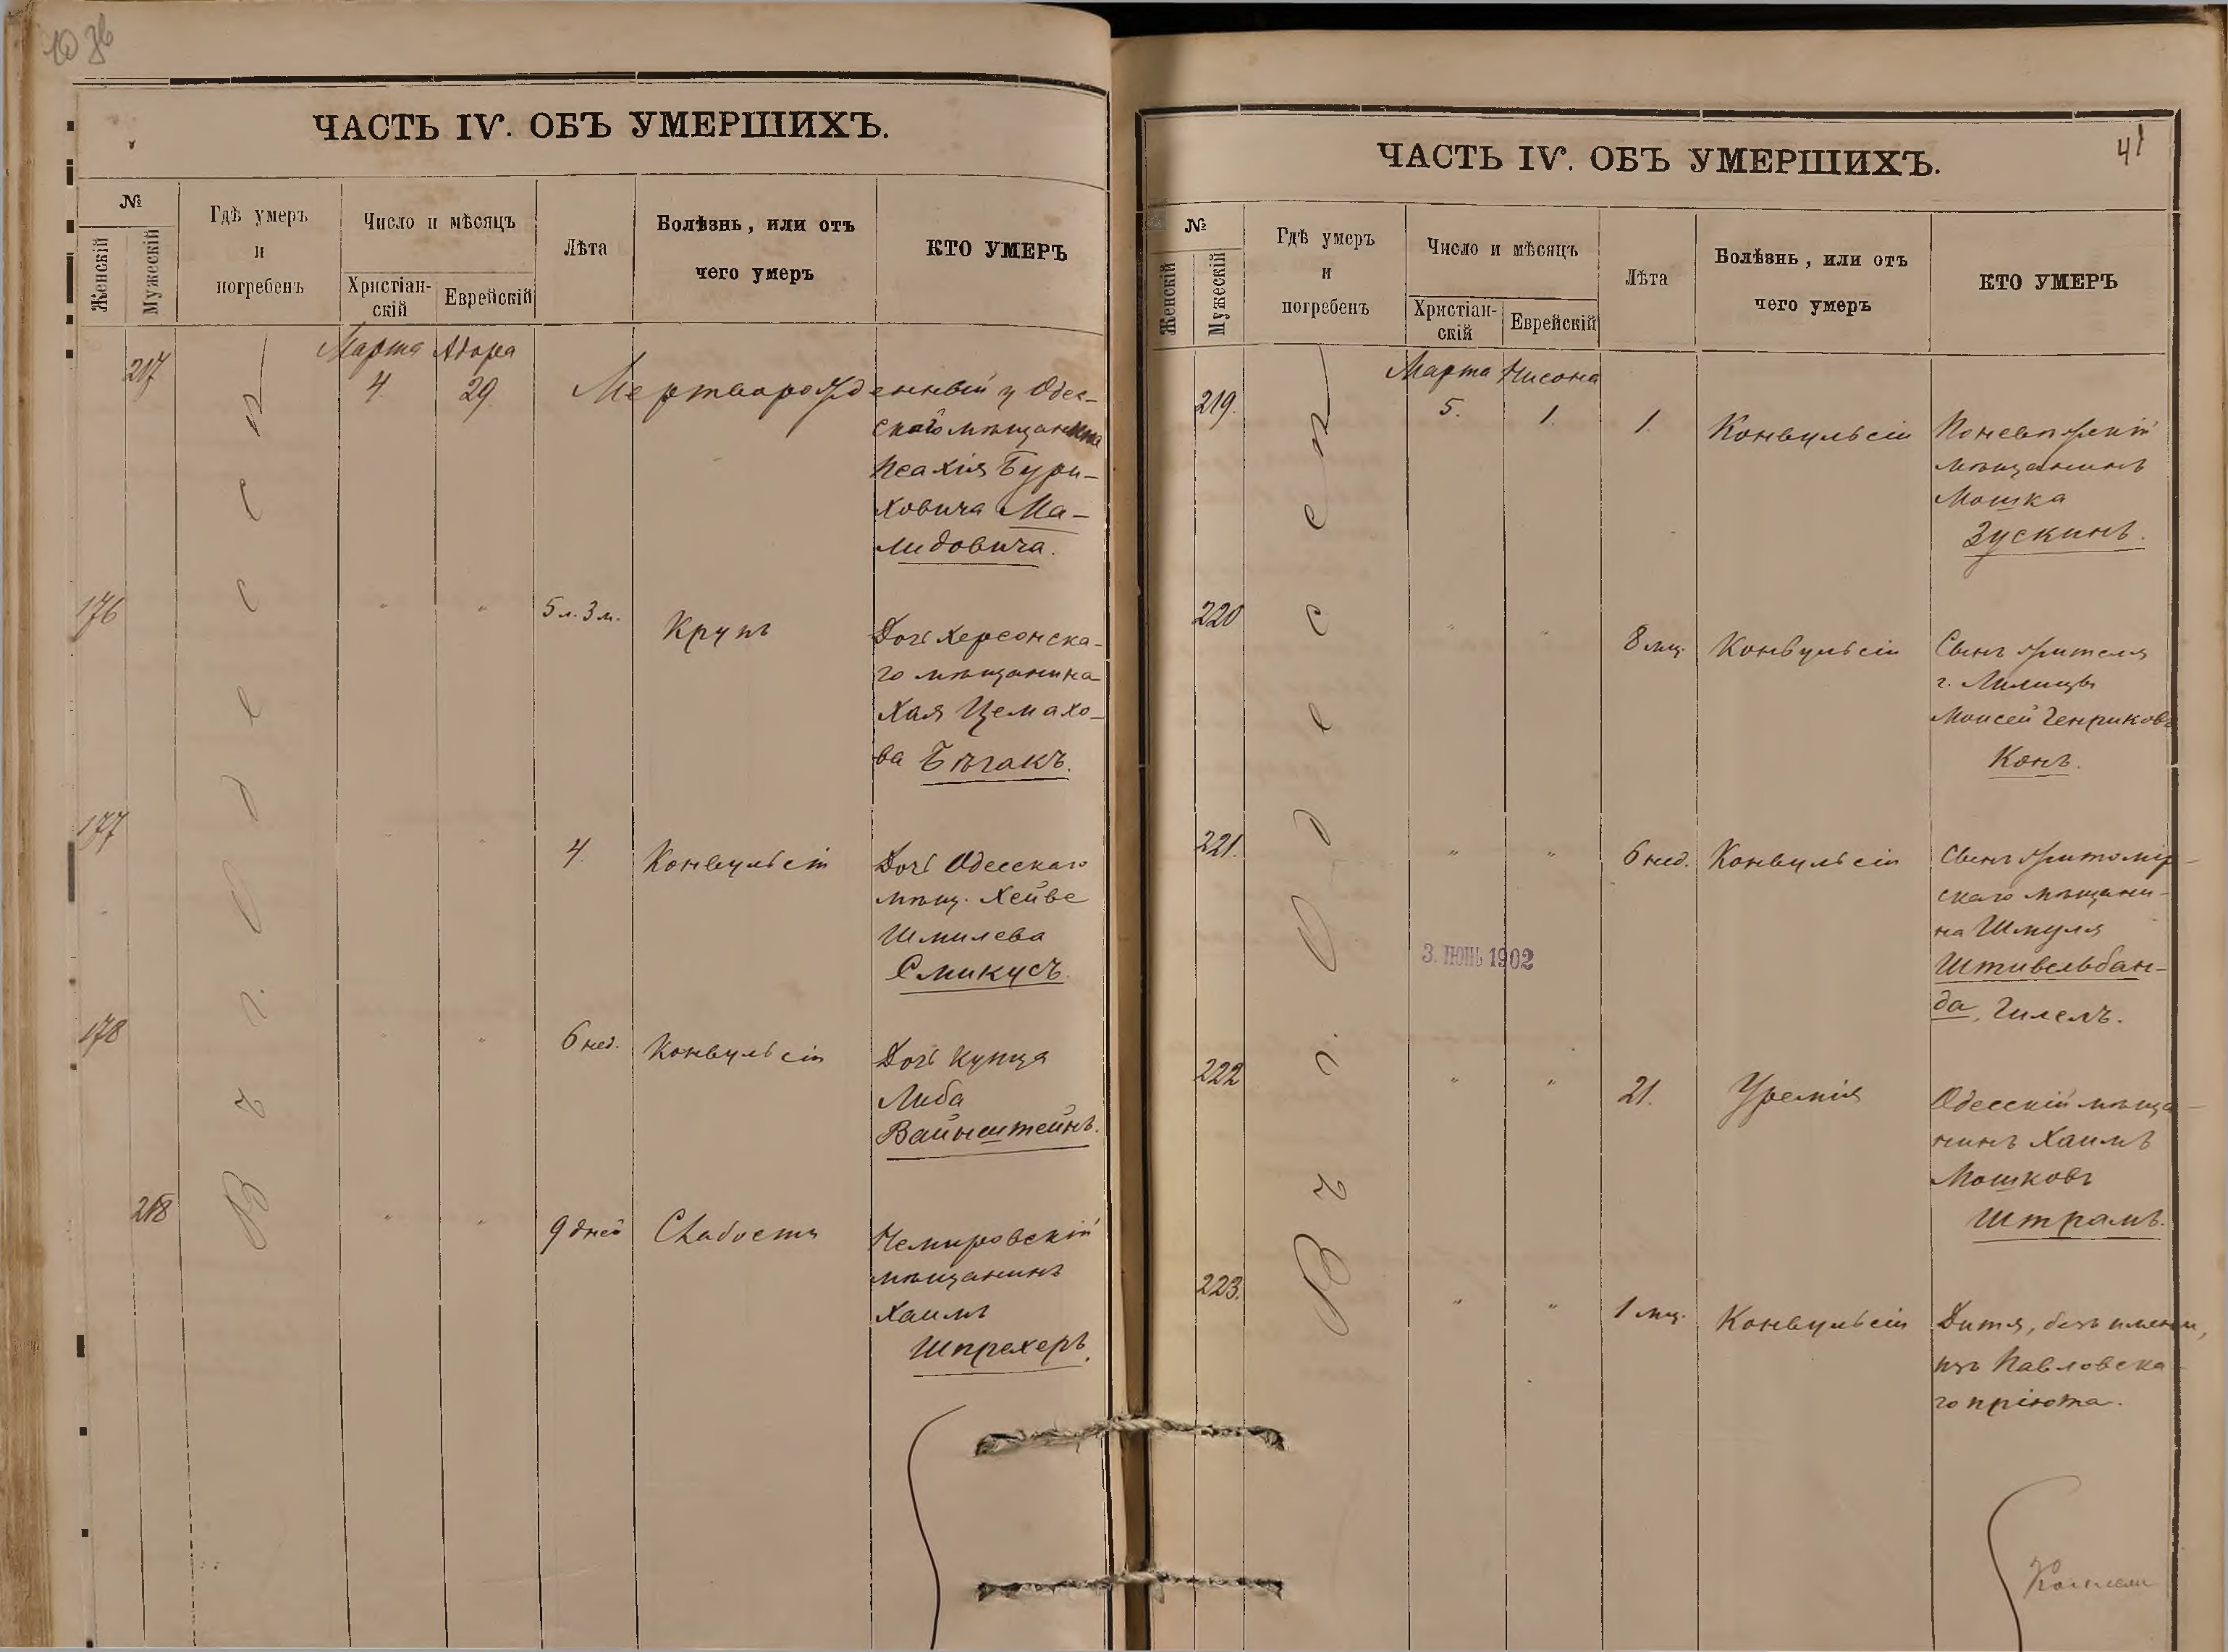 ЧАСТЬ IV. ОБЪ УМЕРШИХЪ.
№
Женскій
Мужескій
Гдѣ умеръ
и
погребенъ
Число и мѣсяцъ
Христіан-
скій
Еврейскій
Лѣта
Болѣзнь, или отъ
чего умеръ
КТО УМЕРЪ
Въ г. Одессѣ
Марта Адара
217
4 29 Мертворожденный у Одес-
скаго мѣщанина
Псахія Бури-
ховича Ма-
лидовича.
176 " " 5 л. 3 м. Крупъ Дочь Херсонска-
го мѣщанина
Хая Цемахо-
ва Бѣгакъ.
177 " " 4 Конвульсіи Дочь Одесскаго
мѣщ. Хейве
Шмилева
Смикусъ.
178 " " 6 нед. Конвульсіи Дочь купца
Либа
Вайнштейнъ.
218 " " 9 дней Слабость Немировскій
мѣщанинъ
Хаимъ
Шпрехеръ.
ЧАСТЬ IV. ОБЪ УМЕРШИХЪ.
41
№
Женскій
Мужескій
Гдѣ умеръ
и
погребенъ
Число и мѣсяцъ
Христіан-
скій
Еврейскій
Лѣта
Болѣзнь, или отъ
чего умеръ
КТО УМЕРЪ
Въ г. Одессѣ
Марта Нисона
219. 5. 1. 1. Конвульсіи Поневѣжскій
мѣщанинъ
Мошка
Зускинъ.
220 " " 8 мц. Конвульсіи Сынъ жителя
г. Милицы
Моисей Генриковъ
Конъ.
221. " " 6 нед. Конвульсіи Сынъ Житомір-
скаго мѣщани-
на Шмуля
Штивельбан-
да, Гилелъ.
3. ІЮНЬ 1902
222 " " 21. Уремія Одесскій мѣща-
нинъ Хаимъ
Мошковъ
Штрамъ.
223. " " 1 мц. Конвульсіи Дитя, безъ имени,
изъ Павловска-
го пріюта.